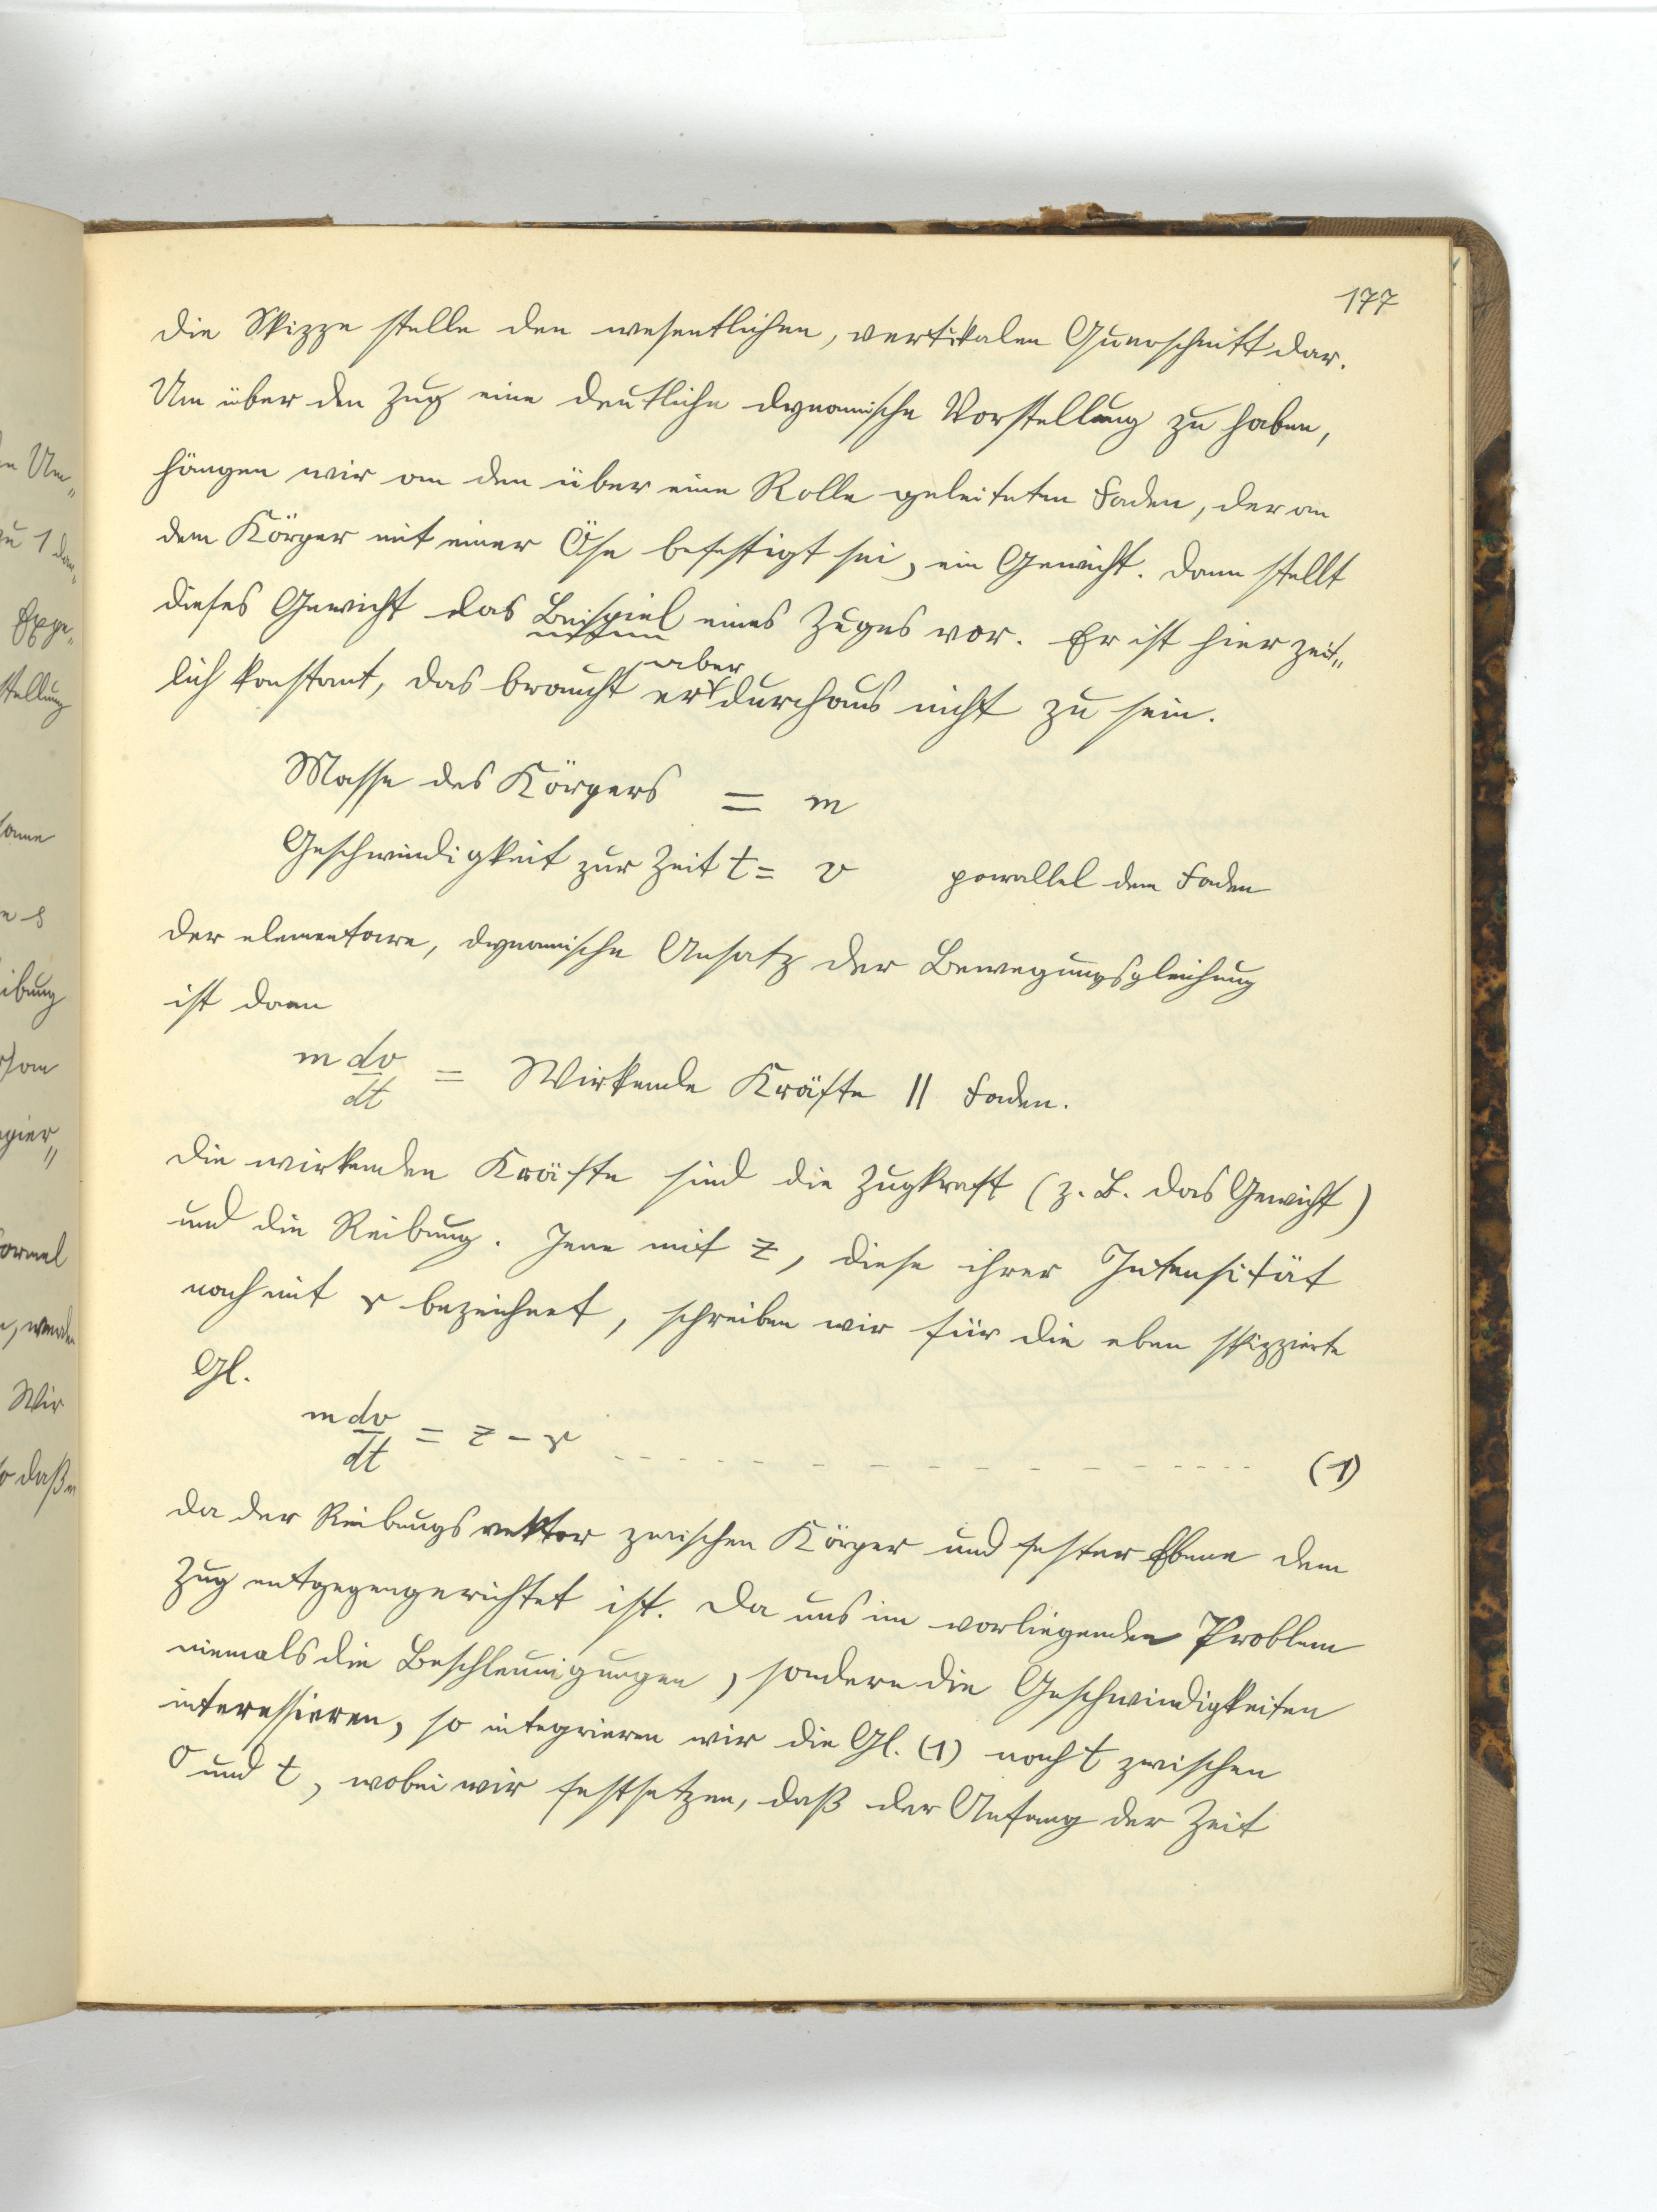 177
Die Skizze stelle den wesentlichen, vertikalen Querschnitt dar.
Um über den Zug eine deutliche dynamische Vorstellung zu haben,
hängen wir an den über eine Rolle geleiteten Faden, der an
dem Körper mit einer Öse befestigt sei, ein Gewicht. Dann stellt
dieses Gewicht das Beispiel eines Zuges vor. Er ist hier zeit„
aber
lich konstant, das braucht er durchaus nicht zu sein.
Masse des Körpers = m
Geschwindigkeit zur Zeit t = v parallel dem Faden
Der elementare, dynamische Ansatz der Bewegungsgleichung
ist dann
m dv/dt = Wirkende Kräfte || Faden.
Die wirkenden Kräfte sind die Zugkraft (z. B. das Gewicht)
und die Reibung. Jene mit z, diese ihrer Intensität
nach mit r bezeichnet, schreiben wir für die eben skizzierte
Gl.
m dv/dt = z - r - - - - - - - - - - - - - - - - (1)
da der Reibungsvektor zwischen Körper und fester Ebene dem
Zug entgegengerichtet ist. Da uns im vorliegenden Problem
niemals die Beschleunigungen, sondern die Geschwindigkeiten
interessieren, so integrieren wir die Gl. (1) nach t zwischen
0 und t, wobei wir festsetzen, daß der Anfang der Zeit